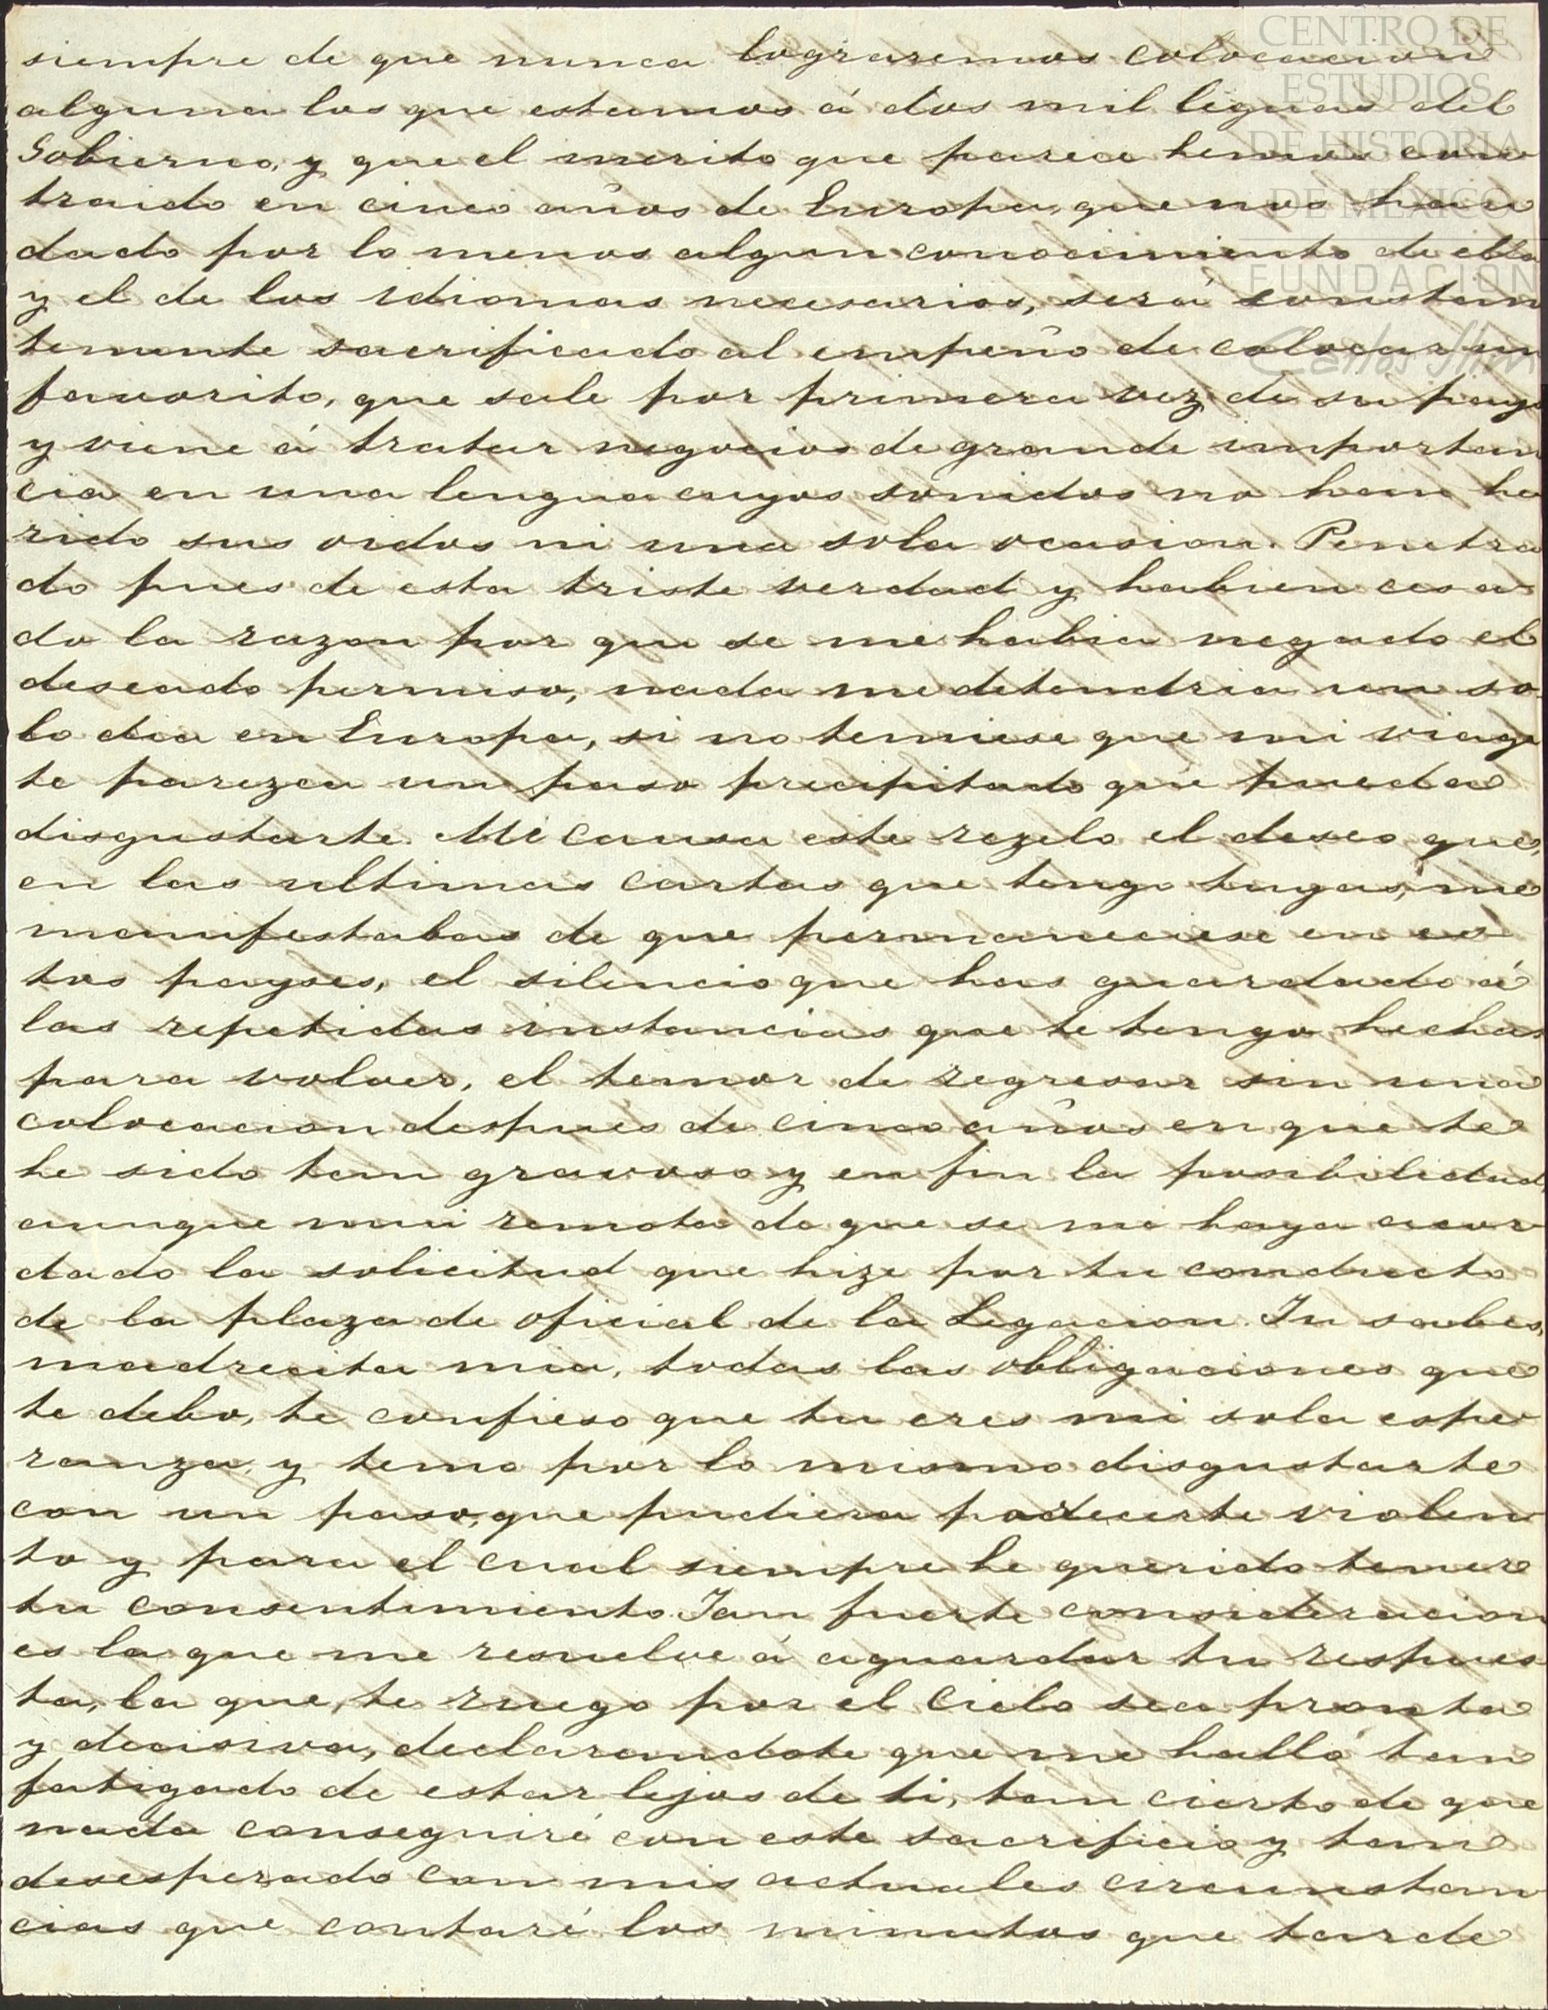 siempre de que nunca lograremos colocacion
alguna los que estamos á dos mil leguas del
Gobierno, y que el merito que parece hemos con
traido en cinco años de Europa, que nos han
dado por lo menos algun conocimiento de ella
y el de los idiomas necesarios, será constan
temente sacrificado al empeño de colocar un
favorito, que sale por primera vez de su pays
y viene á tratar negocios de grande importan
cia en una lengua cuyos sonidos no han he
rido sus oidos ni una sola ocasion. Penetra
do pues de esta triste verdad y habien cesa
do la razon por que se me habia negado el
deseado permiso, nada me detendria un so
lo dia en Europa, si no temiese que mi viage
te parezca un paso precipitado que pueda
disgustarte. Me causa este rezelo el deseo que,
en las ultimas cartas que tengo tuyas, me
manifestabas de que permaneciese en es
tos payses, el silencio que has guardado á
las repetidas instancias que te tengo hechas
para volver, el temor de regresar sin una
colocacion despues de cinco años en que te
he sido tan gravoso y en fin la posibilidad,
aunque mui remota de que se me haya acor
dado la solicitud que hize por tu conducto
de la plaza de oficial de la Legacion. Tu sabes,
madrecita mia, todas las obligaciones que
te debo, te confieso que tu eres mi sola espe
ranza, y temo por lo mismo disgustarte
con un paso, que pudiera parecerte violen
to y para el cual siempre he querido tener
tu consentimiento. Tan fuerte consideracion
es la que me resuelve á aguardar tu respues
ta, la que, te ruego por el Cielo sea pronta
y decisiva, declarandote que me halló tan
fatigado de estar lejos de ti, tan cierto de que
nada conseguiré con este sacrificio y tan
desesperado con mis actuales circunstan
cias que contaré los minutos que tarde
CENTRO DE
ESTUDIOS
DE HISTORIA
DE MÉXICO
FUNDACIÓN
Carlos Slim